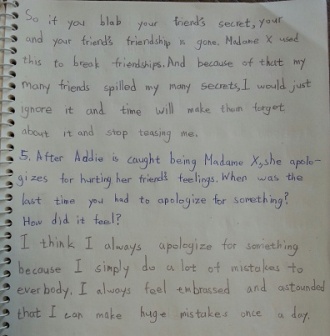 So if you blab your friend's secret, your
and your friend's friendship is gone. Madame X used
this to break friendships. And because of that my
many friends spilled my many secrets, I would just
ignore it and time will make them forget
about it and stop teasing me.
5. After Addie is caught being Madame X, she apolo-
gizes for hurting her friend's feelings. When was the
last time you had to apologize for something?
How did it feel?
I think I always apologize for something
because I simply do a lot of mistakes to
everbody. I always feel embrassed and astounded
that I can make huge mistakes once a day.